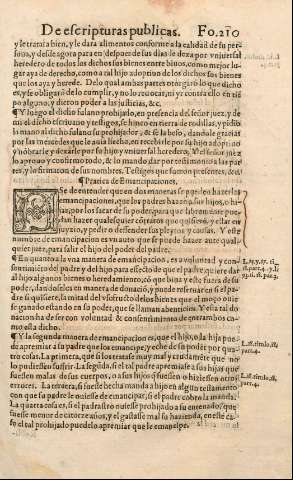 De escripturas publicas. Fo.210
y le tratara bien, y le dara alimentos conforme a la calidad de su per-
sona, y desde agora para en despues de sus dias le dexa por vniuersal
heredero de todos los dichos sus bienes entre biuos, como mejor lu-
gar aya de derecho, como a tal hijo adoptiuo de los dichos sus bienes
que los aya y herede. Delo qual ambas partes otorgarõ lo que dicho
es, y se obligarõ de lo cumplir, y no lo reuocar, ni yr contra ello en tiẽ
po alguno, y dieron poder a las justicias, &c.
¶ Y luego el dicho fulano prohijado, en presencia del señor juez, y de
mi el dicho escriuano y testigos, se hinco en tierra de rodillas, y pidio
la mano al dicho fulano su prohijador, y se la beso, dandole gracias
por las mercedes que le auia hecho, en recebirle por su hijo adoptiuo
y hõbrarle y dotarle por su hijo y vniuersal heredero, Y el señor juez
lo aprouo y confirmo todo, & lo mando dar por testimonio a las par
tes, y lo firmaron de sus nombres. Testigos que fueron presentes, &c.
¶ Pratica de Emancipaciones.
SE de entender que en dos maneras se puedẽ hazer las
emancipaciones, que los padres hazen a sus hijos, o hi-
jas, por los sacar de su poder, para que libremente pue
dan hazer qualesquier cõtratos que quisierẽ, y estar en
juyzio, y pedir o defender sus pleytos y causas. Y este
nombre de emancipacion es vn auto que se puede hazer ante qual-
quier juez, para salir el hijo del poder del padre.
¶ En quanto a la vna manera de emancipacion, es voluntad y con-
sentimiẽto del padre y del hijo para esfecto de que el padre quiere dar
al hijo algunos bienes o heredamiẽto, cõ que biua y este fuera de su
poder, dandoselos en manera de donaciõ, y puede reseruar en si el pa-
dre si quisiere, la mitad del vsofructo delos bienes que el moço ouie
re ganado estando en su poder, que se llaman abentẽcios. Y esta tal do
nacion ha de ser con voluntad & consentimiento de entrambos co-
mo esta dicho.
¶ Y la segunda manera de emancipacion es, que el hijo, o la hija pue-
de apremiar a su padre que los emancipe, y eche de su podẽr por qua-
tro cosas. La primera, que si los tratase muy mal y crudamẽte que no
los pudiesẽ sufrir. La segũda, si el tal padre apremiase a sus hijos que
fuesen malas de sus cuerpos, o a sus hijos que fuesen o hiziesen otros
errores. La tercera, si fuese hecha manda a hijo en algun testamento
con que su padre le ouiese de emancipar, si el padre cobro la manda.
La quarta cosa es, si el padrastro ouiese prohijado a su entenado que
fuese menor de catorze años, y el gastasse mal su hazienda, en este ca-
so el tal prohijado puedelo apremiar que le emancipe.
L.15.y.17. ti.
18.part.4.
L.18.titulo.18.
part.4.
L.18.titulo.18.
part.4.